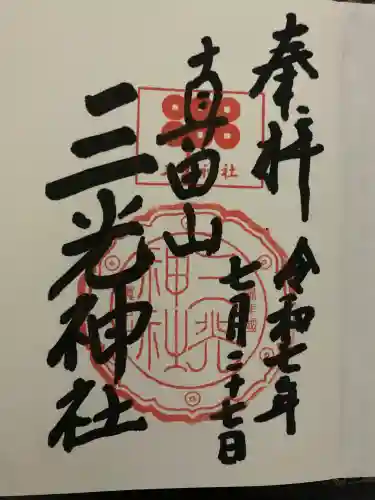 奉拝
令和七年
七月二十七日
真田山
三光神社
三光神社